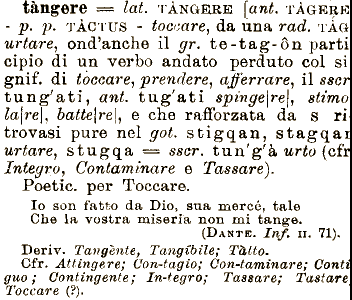 tàngere = lat. TÀNGERE [ant. TÀGERE
- p. p. TÀCTUS - toccare, da una rad. TÀG
urtare, ond'anche il gr. te-tag-ôn parti
cipio di un verbo andato perduto col si
gnif. di toccare, prendere, afferrare, il sscr
tung'ati, ant. tug'ati spinge[re], stimo
la[re], batte[re], e che rafforzata da s ri
trovasi pure nel got. stigqan, stagqan
urtare, stugqa = sscr. tun'g'à urto (cfr
Integro, Contaminare e Tassare).
Poetic. per Toccare.
Io son fatto da Dio, sua mercé, tale
Che la vostra miseria non mi tange.
(DANTE. Inf. II. 71).
Deriv. Tangènte, Tangìbile; Tàtto.
Cfr. Attingere; Con-tagio; Con-taminare; Conti
guo; Contingente; In-tegro; Tassare; Tastare
Toccare (?).